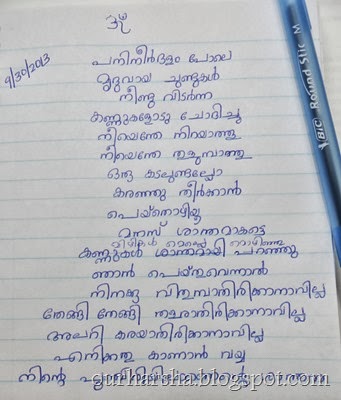 ॐ
9/30/2013
പനിനീർദളം പോലെ
മൃദുവായ ചുണ്ടുകൾ
നീണ്ടു വിടർന്ന
കണ്ണുകളോടു ചോദിച്ചു
നീയെന്തേ നിറയാത്തൂ
നീയെന്തേ തുളുമ്പാത്തൂ
ഒരു കടലുണ്ടല്ലോ
കരഞ്ഞു തീർക്കാൻ
പെയ്തൊഴിയൂ
മനസ് ശാന്തമാകട്ടെ
മെല്ലെ
കണ്ണുകൾ ശാന്തമായി പറഞ്ഞു
ഞാൻ പെയ്തുവെന്നാൽ
നിനക്കു വിതുമ്പാതിരിക്കാനാവില്ല
തേങ്ങി തേങ്ങി തളരാതിരിക്കാനാവില്ല
അലറി കരയാതിരിക്കാനാവില്ല
എനിക്കതു കാണാൻ വയ്യ
നിന്റെ
BIC Round Stic M
gurharsha.blogspot.com